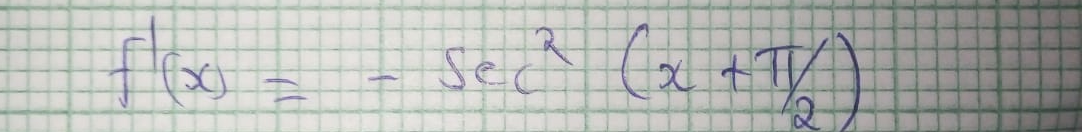 f'(x) = - sec² (x + π/2)